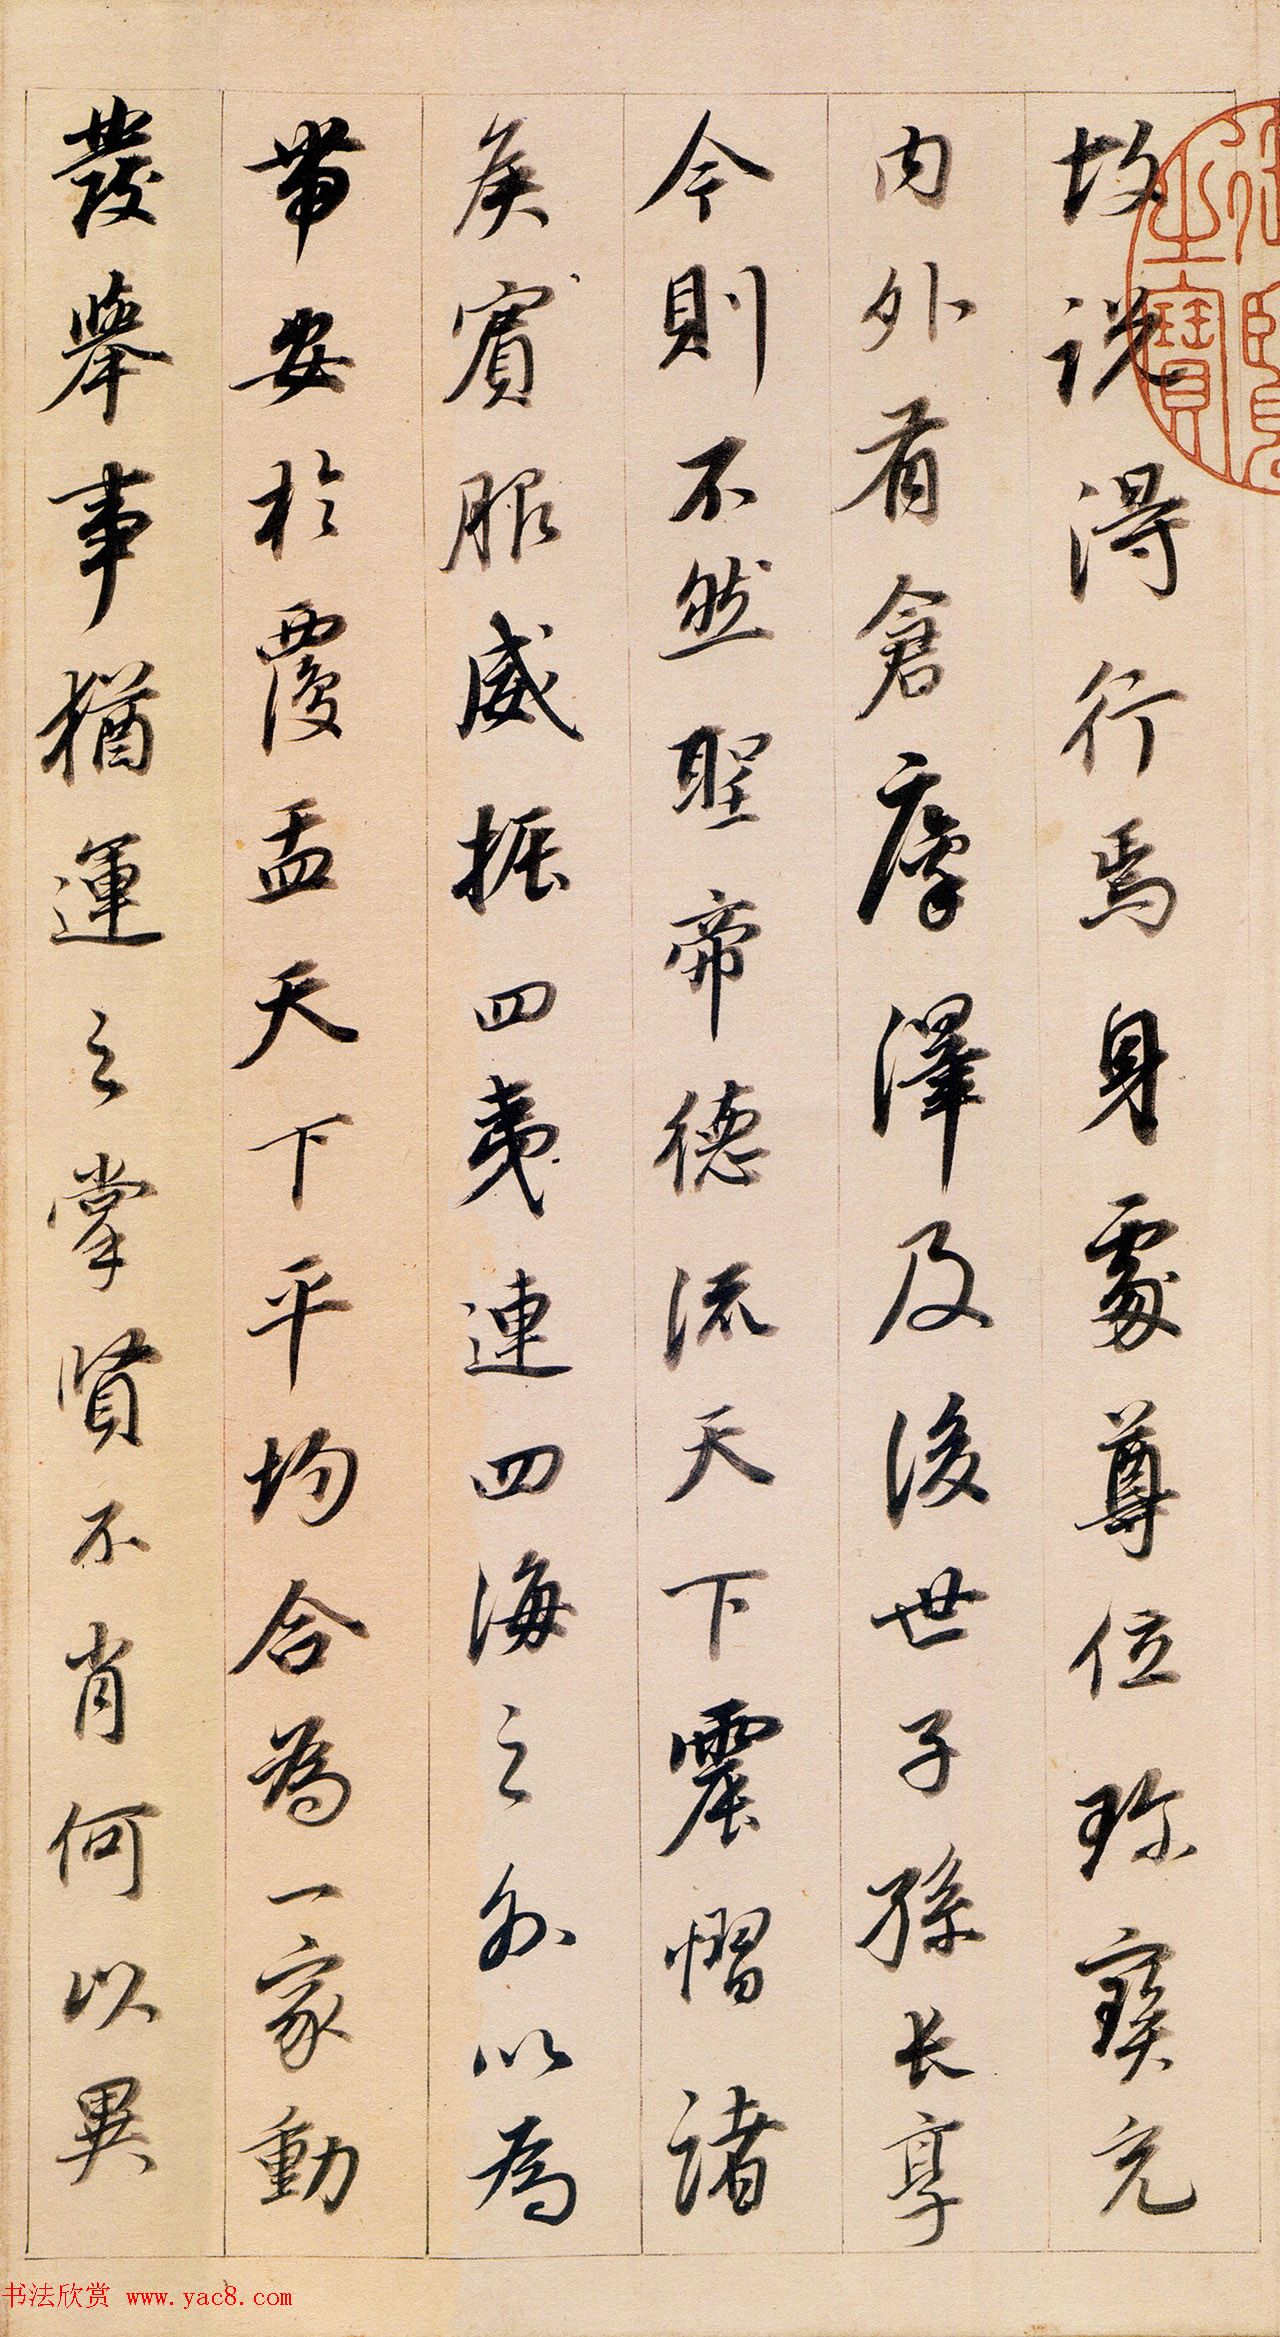 故説得行焉身處尊位珍寶充
内外有倉庫澤及後世子孫长享
今則不然聖帝德流天下震慴諸
矦賓服威振四夷連四海之外以為
帶安於覆盂天下平均合為一家動
發舉事猶運之掌賢不肖何以異
之寶
书法欣赏 www.yac8.com